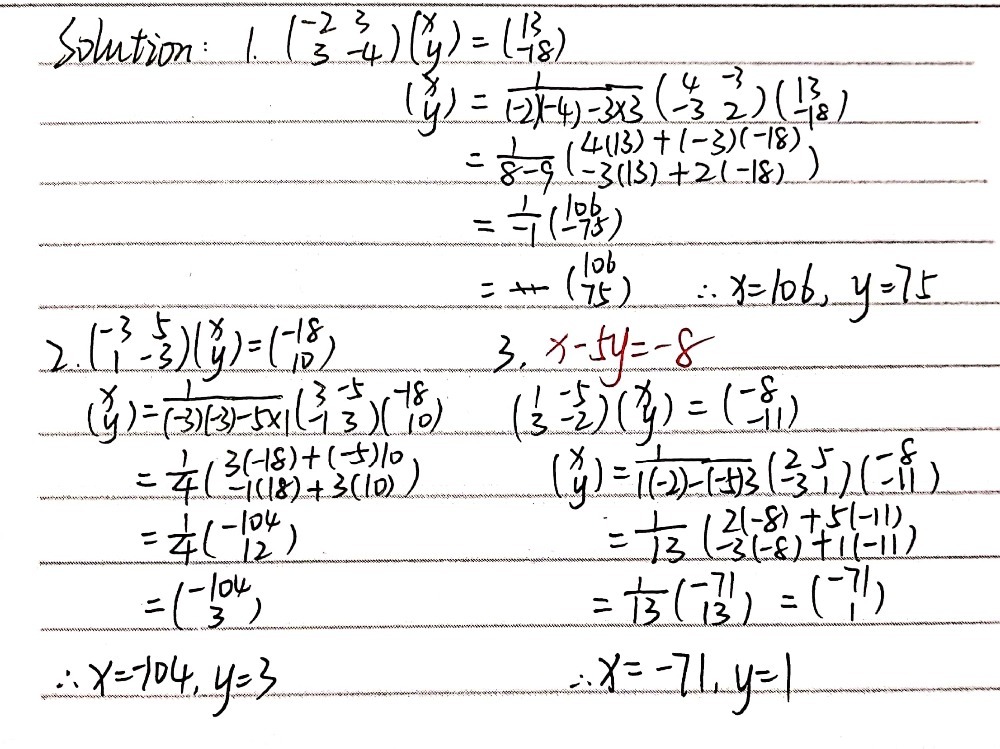 Solution: 1. (-2 3 / 3 -4)(x / y) = (13 / -18)
(x / y) = 1/((-2)(-4)-3×3) (4 -3 / -3 2)(13 / -18)
= 1/(8-9) (4(13)+(-3)(-18) / -3(13)+2(-18))
= 1/-1 (106 / -75)
= (106 / 75) ∴ x=106, y=75
2. (-3 5 / 1 -3)(x / y)=(-18 / 10)
(x / y)=1/((-3)(-3)-5×1) (3 -5 / -1 3)(-18 / 10)
= 1/4 (3(-18)+(-5)10 / -1(18)+3(10))
= 1/4 (-104 / 12)
= (-104 / 3)
∴ x=-104, y=3
3. x-5y=-8
(1 -5 / 3 -2)(x / y) = (-8 / -11)
(x / y)=1/(1(-2)-(-5)3) (2 5 / -3 1)(-8 / -11)
= 1/13 (2(-8)+5(-11) / -3(-8)+1(-11))
= 1/13 (-71 / 13) = (-71 / 1)
∴ x=-71, y=1